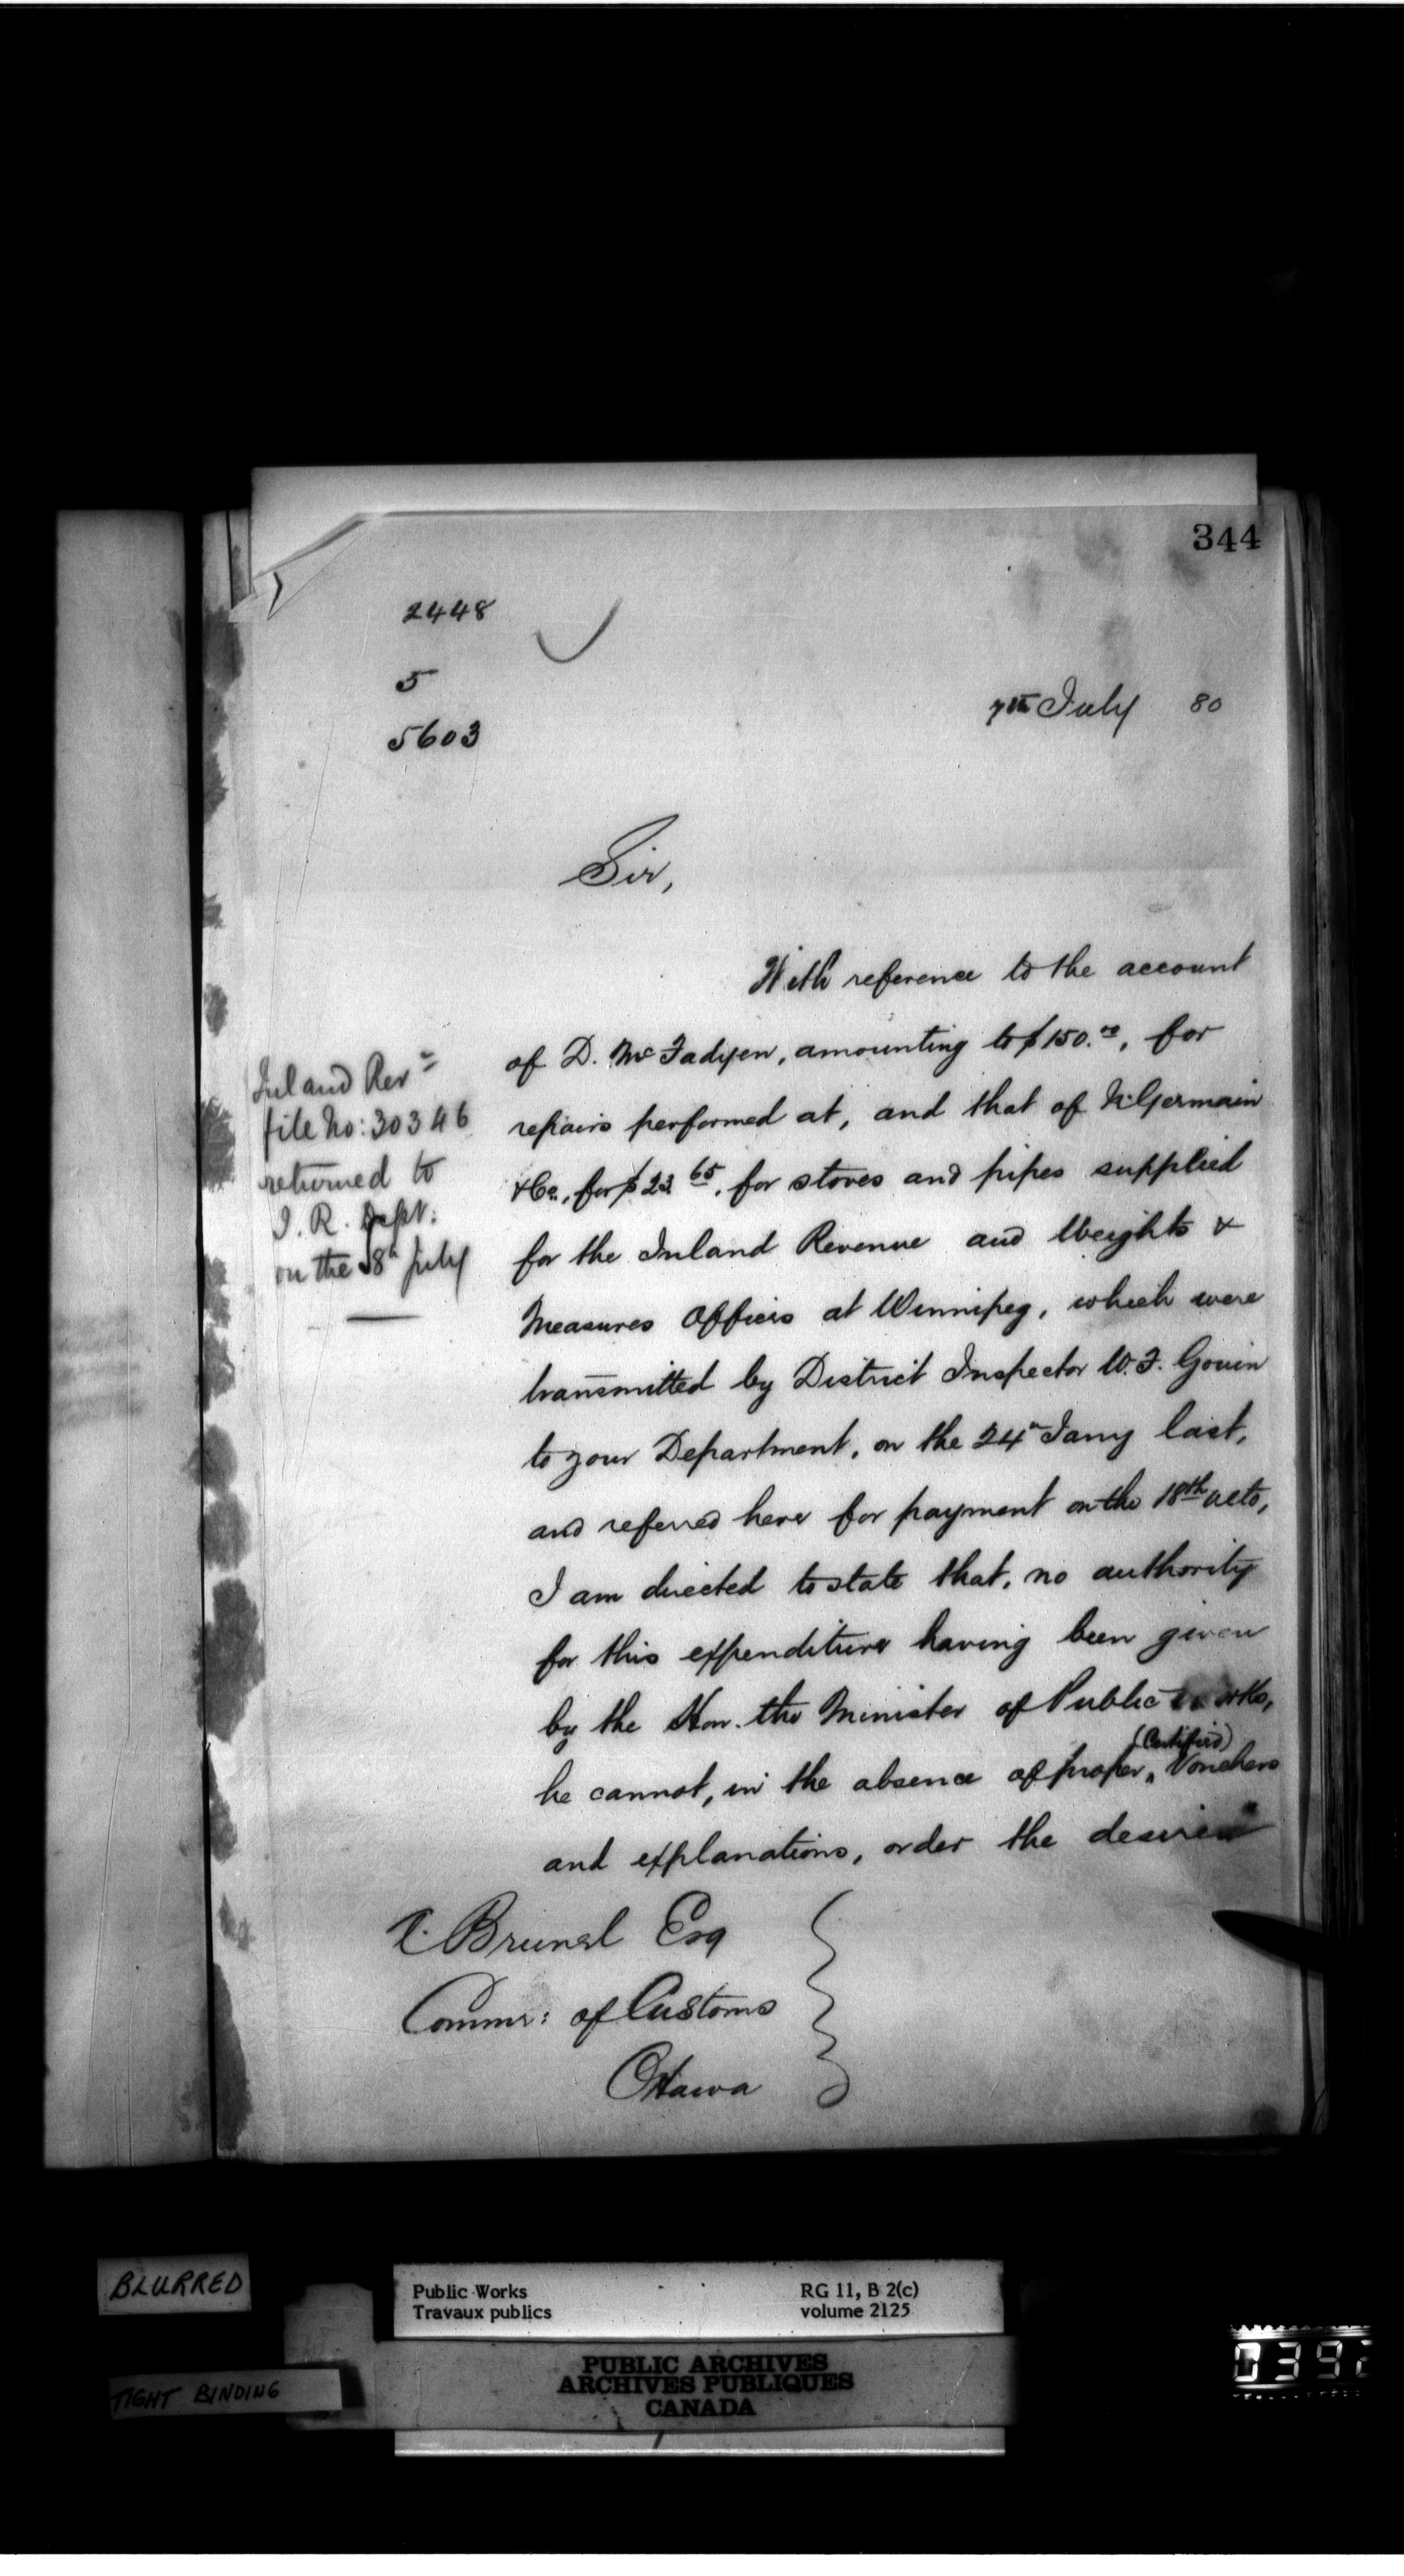 344
2448
5
5603
7th July 80
Sir,
With reference to the account
of D. McFadyen, amounting to $150.00, for
repairs performed at, and that of N. Germain
& Co., for $23.65, for stoves and pipes supplied
for the Inland Revenue and Weights &
Measures Offices at Winnipeg, which were
transmitted by District Inspector W. F. Gouin
to your Department, on the 24th Jany last,
and referred here for payment on the 18th ulto,
I am directed to state that, no authority
for this expenditure having been given
by the Hon. the Minister of Public Works,
(Certified)
he cannot, in the absence of proper, Vouchers
and explanations, order the desired
Inland Reve
file No: 30346
returned to
I. R. Dept:
on the 8th July
A. Brunel Esq
Commr: of Customs
Ottawa
BLURRED
TIGHT BINDING
Public Works
Travaux publics
RG 11, B 2(c)
volume 2125
PUBLIC ARCHIVES
ARCHIVES PUBLIQUES
CANADA
0397